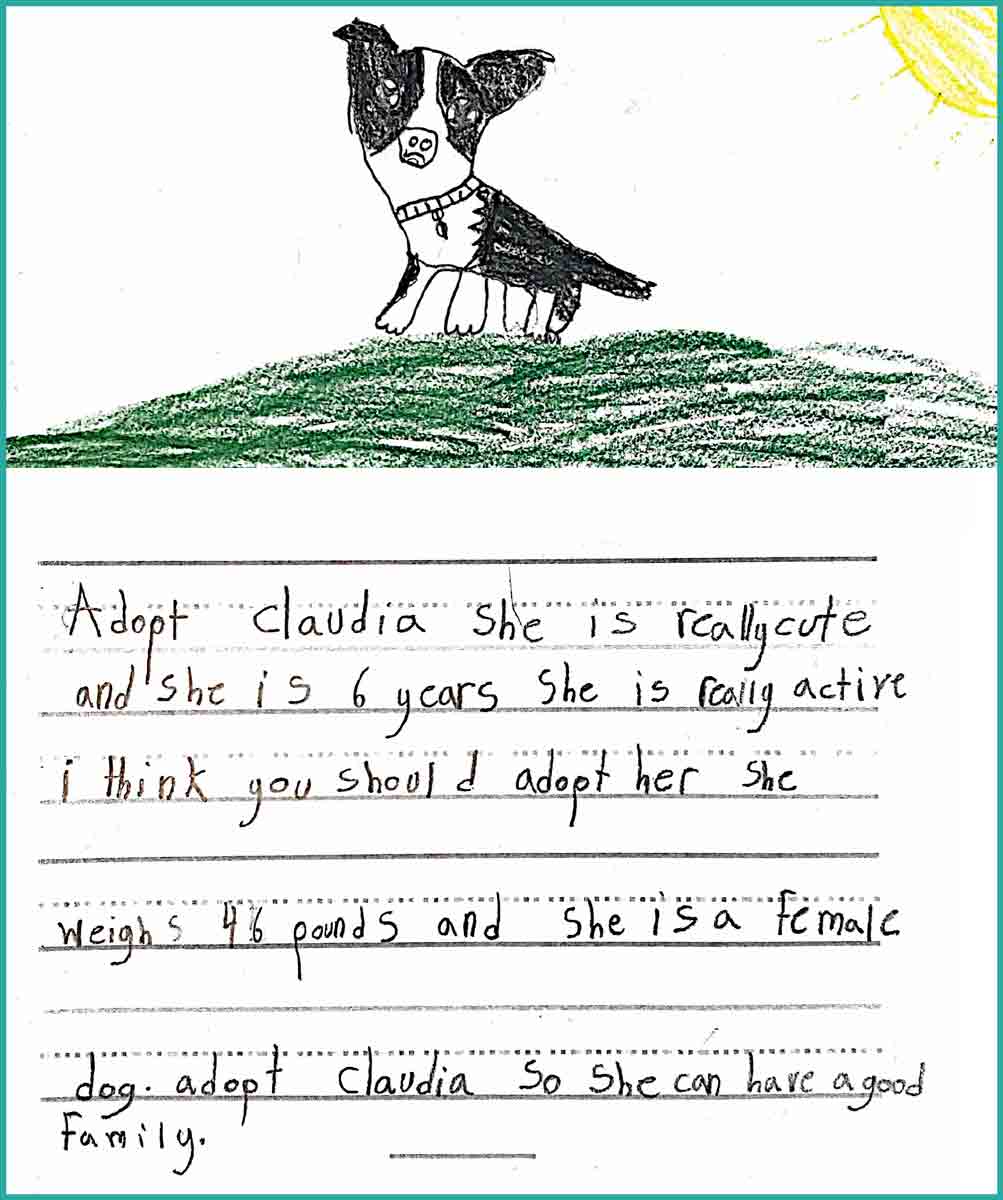 Adopt Claudia She is really cute
and she is 6 years She is really active
i think you should adopt her She
weighs 46 pounds and She is a female
dog. adopt Claudia So She can have a good
Family.